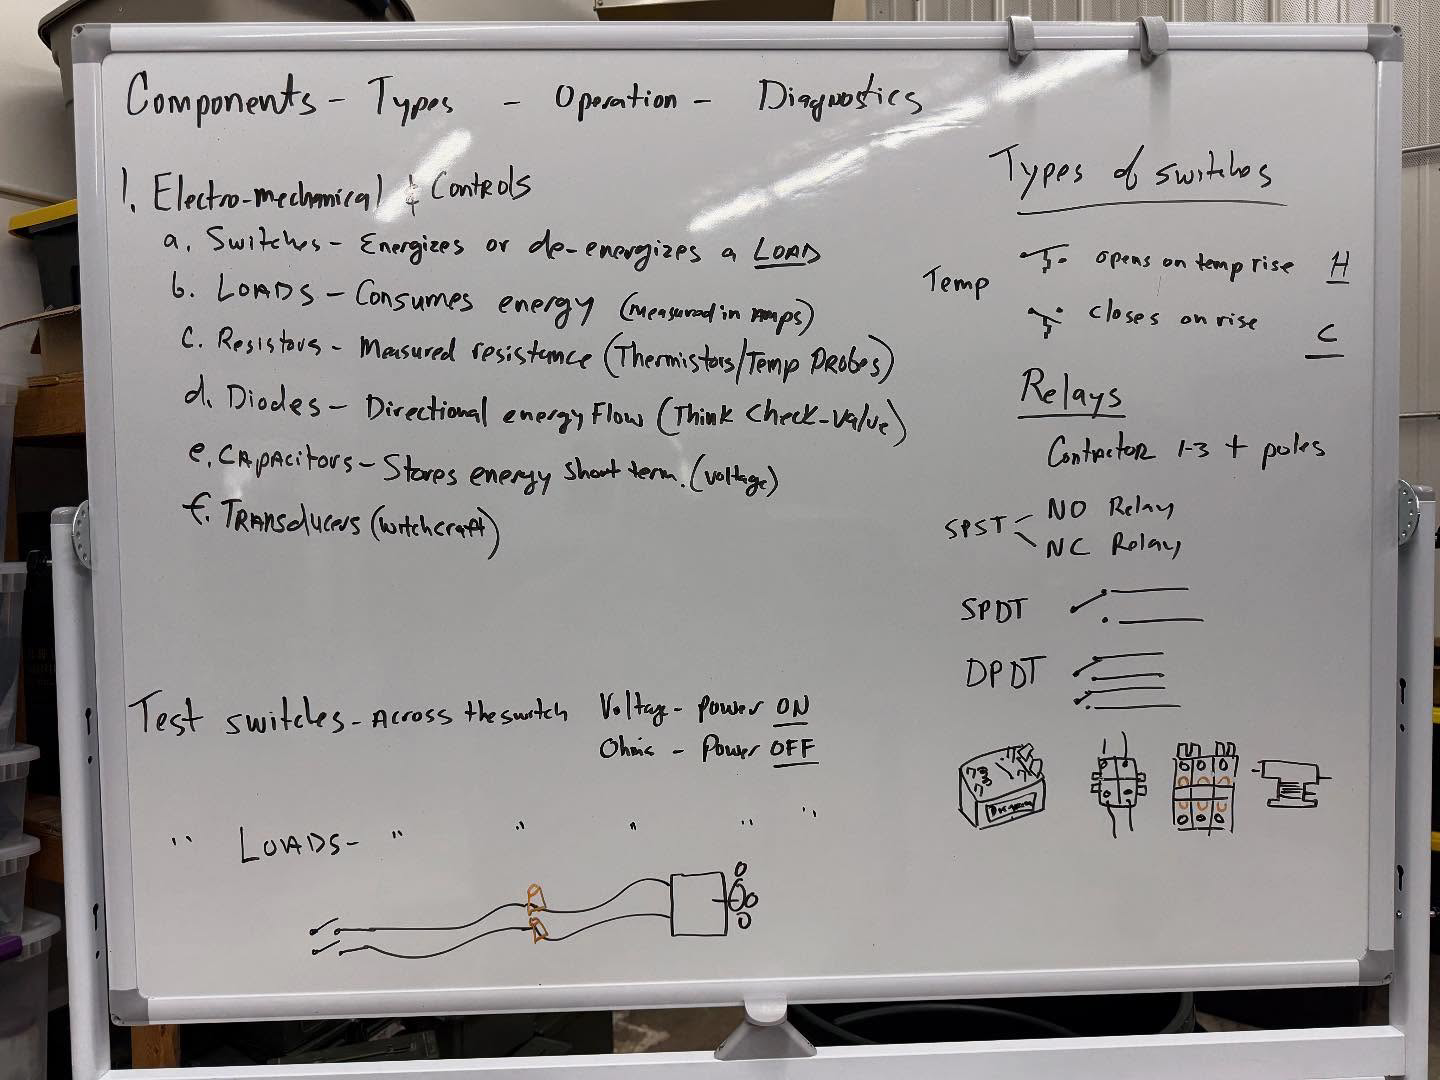 Components - Types - Operation - Diagnostics
1. Electro-mechanical & Controls
a. Switches - Energizes or de-energizes a LOAD
b. LOADS - Consumes energy (measured in Amps)
c. Resistors - Measured resistance (Thermistors/Temp PROBES)
d. Diodes - Directional energy Flow (Think Check-Valve)
e. CAPACITORS - Stores energy short term. (voltage)
f. TRANSducers (witchcraft)
Test switches - Across the switch Voltage - power ON
Ohms - Power OFF
" LOADS - " " " " "
Types of switches
Temp
opens on temp rise H
closes on rise C
Relays
Contactor 1-3 + poles
SPST
NO Relay
NC Relay
SPDT
DPDT